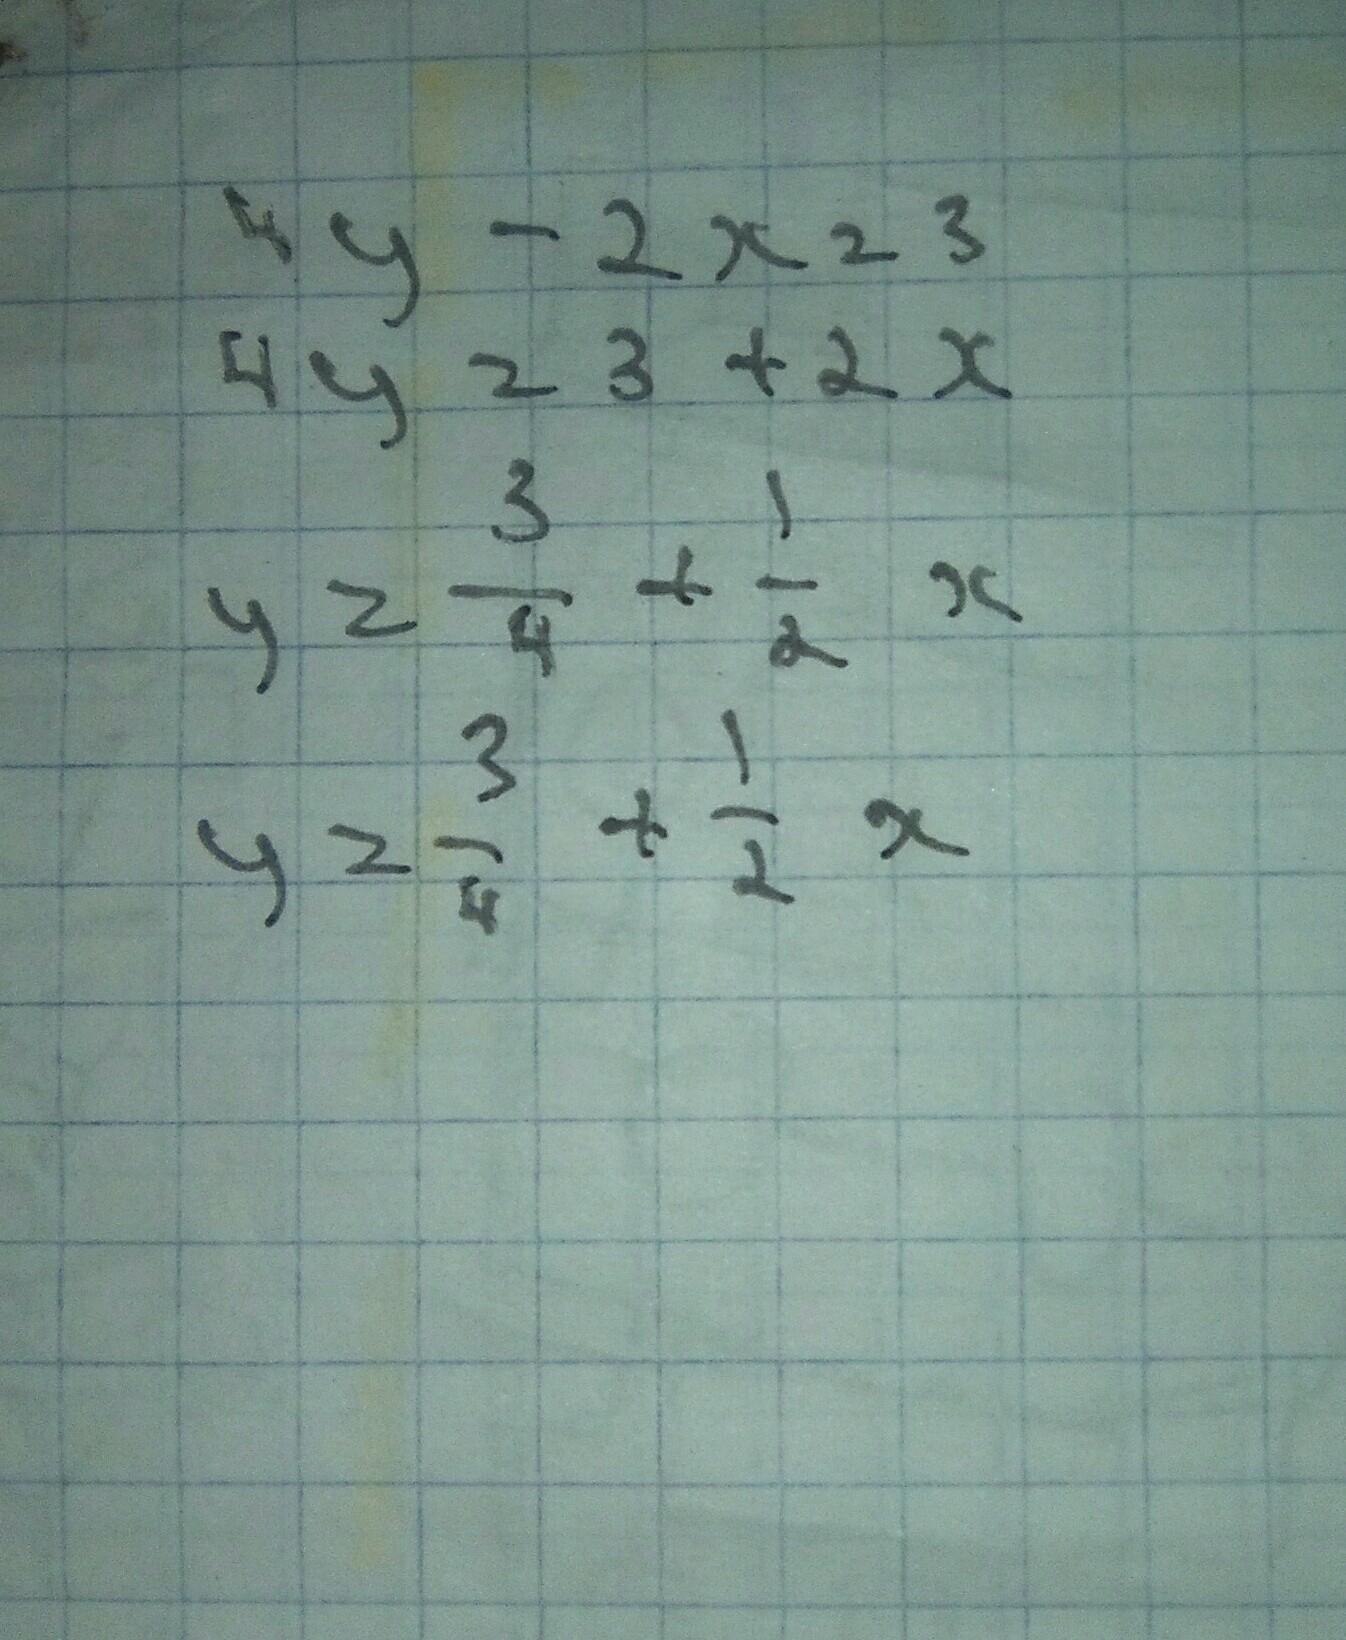 4y - 2x = 3
4y = 3 + 2x
y = 3/4 + 1/2 x
y = 3/4 + 1/2 x